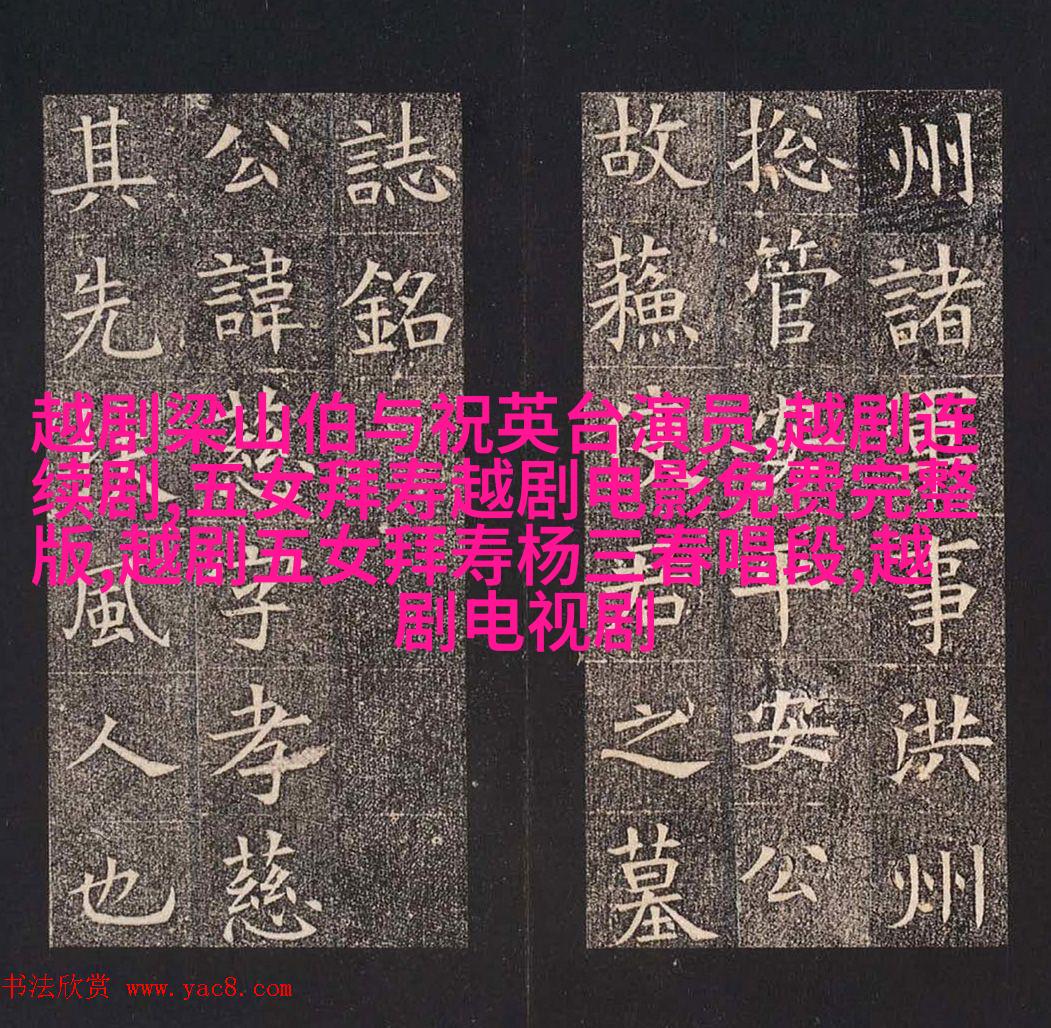 越剧梁山伯与祝英台演员,越剧连
续剧,五女拜寿越剧电影免费完整
版,越剧五女拜寿杨三春唱段,越
剧电视剧
州諸事洪州
捴管安平安公
故蘓君之墓
誌銘
公諱慈字孝慈
其先風人也
书法欣赏 www.yac8.com